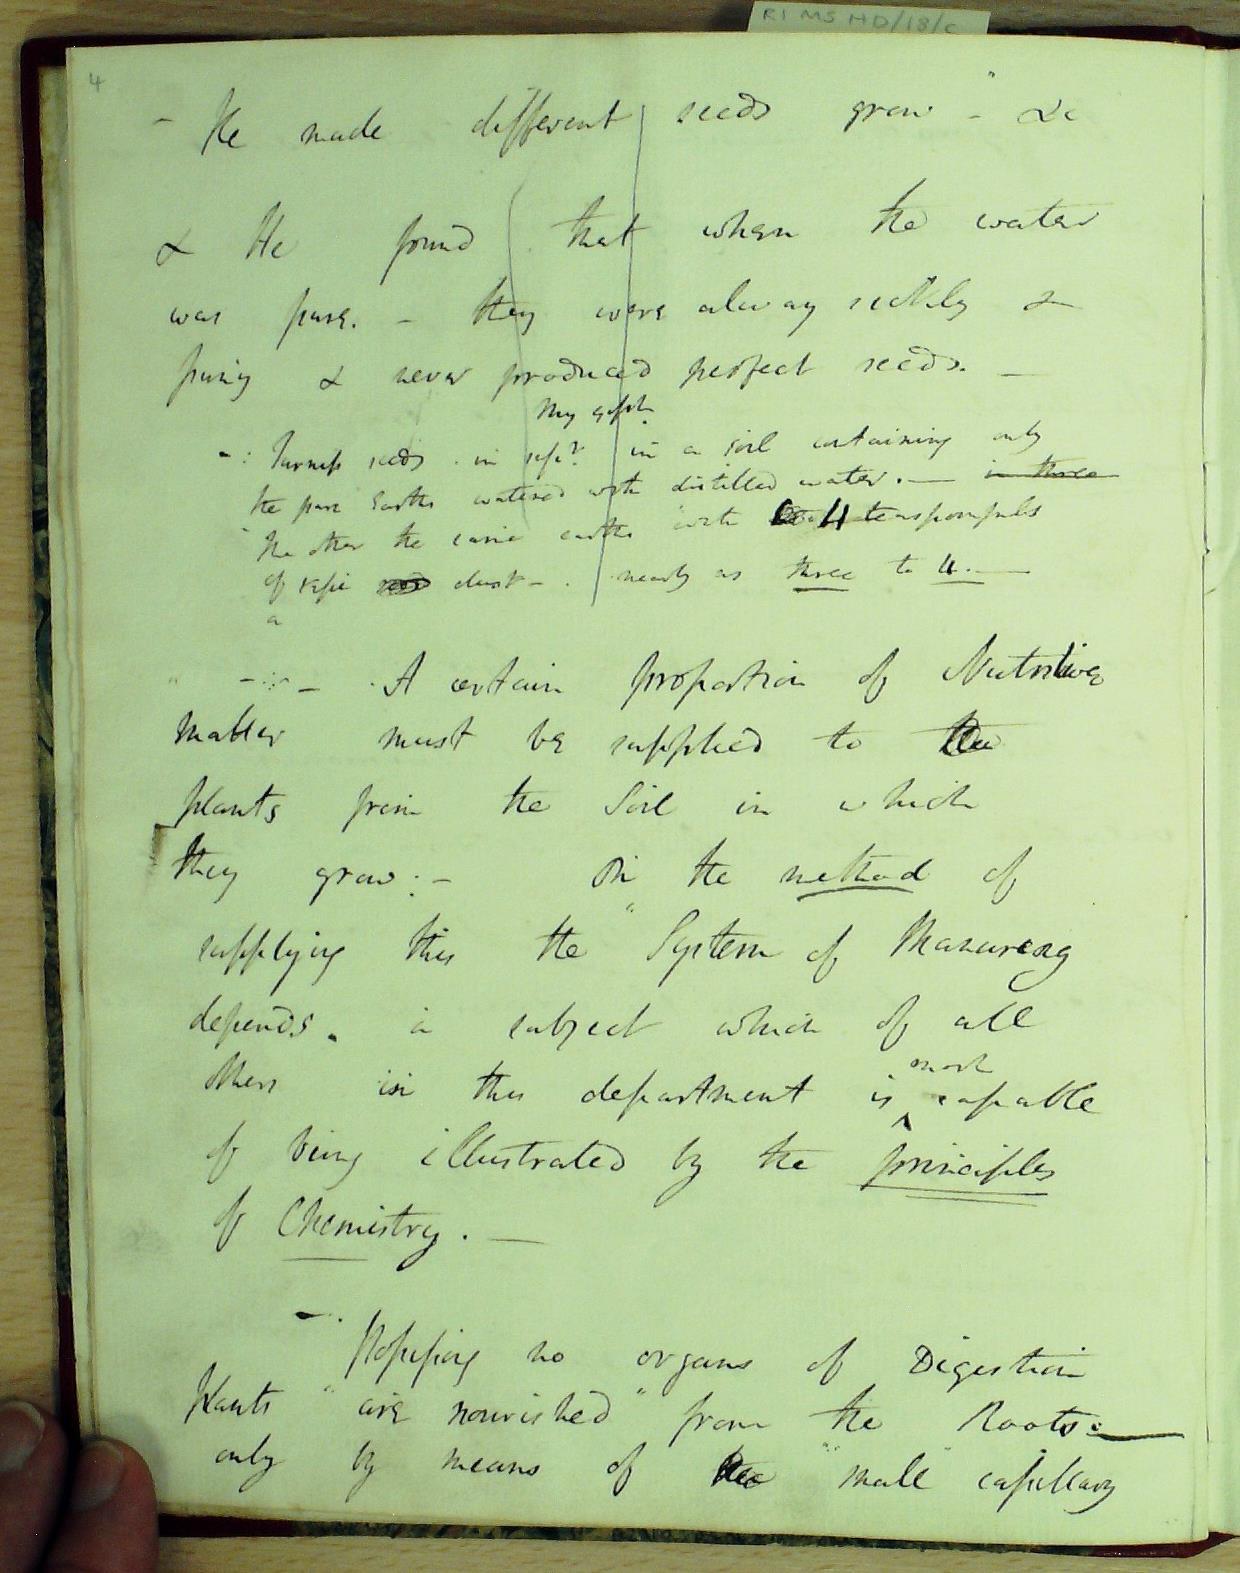 RI MS HD/18/C
4
- He made different seeds grow - &c
& He found that when the water
was pure. - they were alway sickly &
puny & never produced perfect seeds. -
My expts.
-: Turnip seeds. in in a soil containing only
the pure Earths watered with distilled water. - in three
The other the same earths with 4 teaspoonfuls
of dust -. nearly as three to 4. -
a
- A certain proportion of Nutritive
matter must be supplied to the
plants from the Soil in which
they grow: - On the method of
supplying this the "System of Manuring
depends. a subject which of all
others in this department is most capable
of being illustrated by the principles
of Chemistry. -
-. Possessing no organs of Digestion
Plants "are nourished" from the Roots:
only by means of the "small capillary